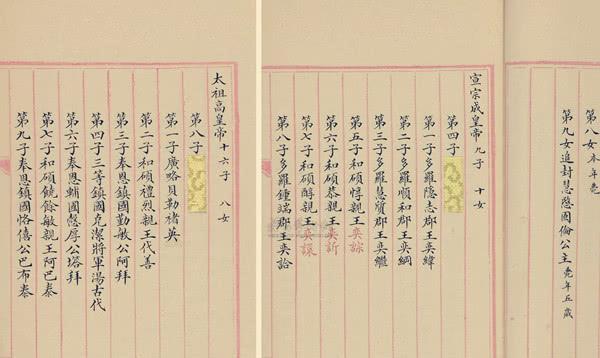 第八女 本年薨
第九女追封慧愍固倫公主 薨年五歲
宣宗成皇帝 九子 十女
第四子
第一子多羅隱志郡王奕緯
第二子多羅順和郡王奕綱
第三子多羅慧質郡王奕繼
第五子和碩惇親王奕誴
第六子和碩恭親王奕訢
第七子和碩醇親王奕譞
第八子多羅鍾端郡王奕詥
太祖高皇帝 十六子 八女
第八子
第一子廣略貝勒褚英
第二子和碩禮烈親王代善
第三子奉恩鎮國勤敏公阿拜
第四子三等鎮國克潔將軍湯古代
第六子奉恩輔國愨厚公塔拜
第七子和碩饒餘敏親王阿巴泰
第九子奉恩鎮國恪僖公巴布泰